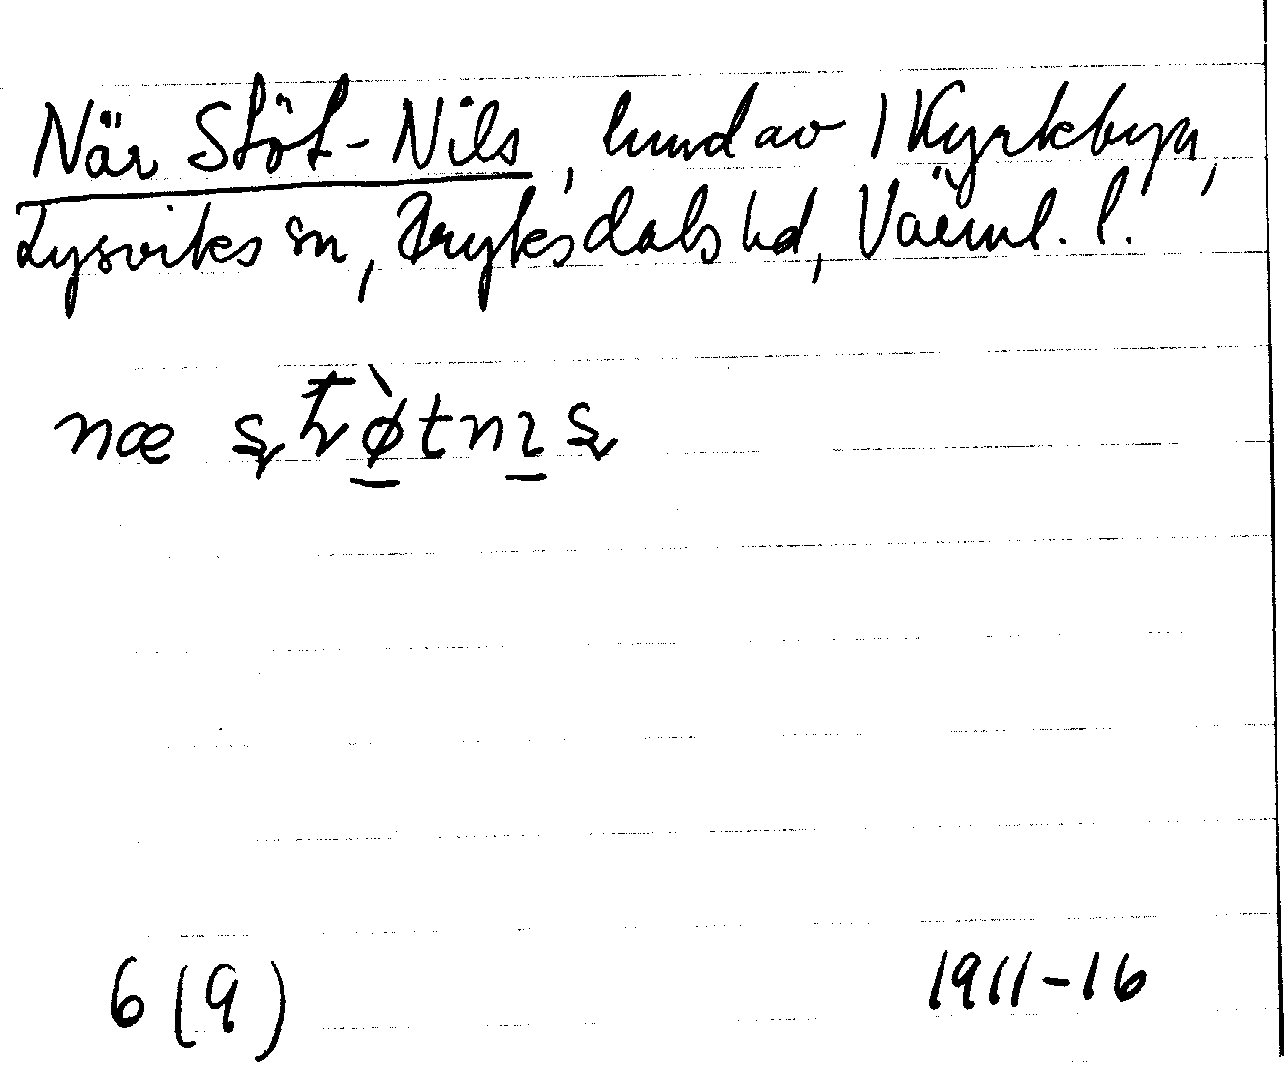 När Stöt-Nils, hmd av 1 Kyrkbyn,
Lysviks sn, Fryksdals hd, Värml. l.
næ
6 (9) 1911-16